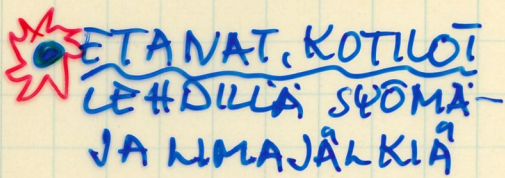 ETANAT, KOTILOT
LEHDILLÄ SYÖMÄ-
JA LIMAJÄLKIÄ